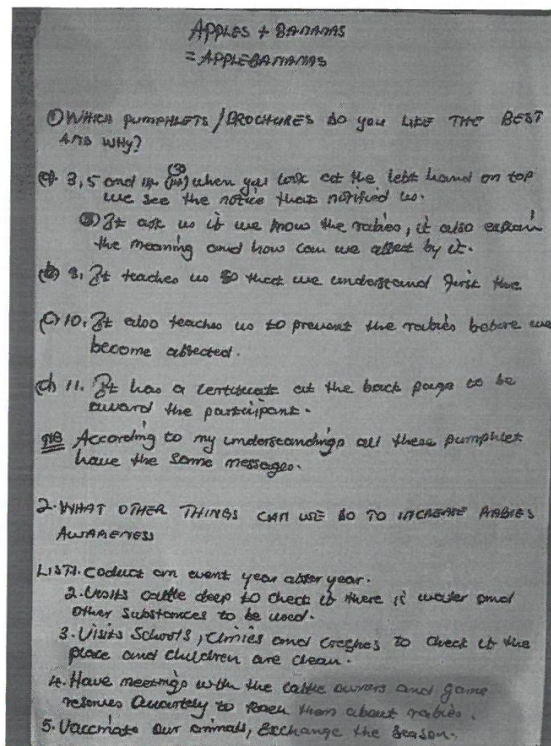 APPLES + BANANAS
= APPLEBANANAS
① WHICH PUMPHLETS/BROCHURES DO YOU LIKE THE BEST
AND WHY?
(a) 3, 5 and when you look at the left hand on top
we see the notice that notified us.
It ask us if we know the rabies, it also explain
the meaning and how can we affect by it.
(b) 8. It teaches us so that we understand first the
(c) 10. It also teaches us to prevent the rabies before we
become affected.
(d) 11. It has a certificate at the back page to be
award the participant.
NB According to my understandings all these pumphlet
have the same messages.
2. WHAT OTHER THINGS CAN WE DO TO INCREASE RABIES
AWARENESS
LIST1. Coduct an event year after year.
2. Visits cattle deep to check if there is water and
other substances to be used.
3. Visits Schools, Clinics and creches to check if the
place and children are clean.
4. Have meetings with the cattle owners and game
reserves Quartely to teach them about rabies.
5. Vaccinate our animals, Exchange the Season.